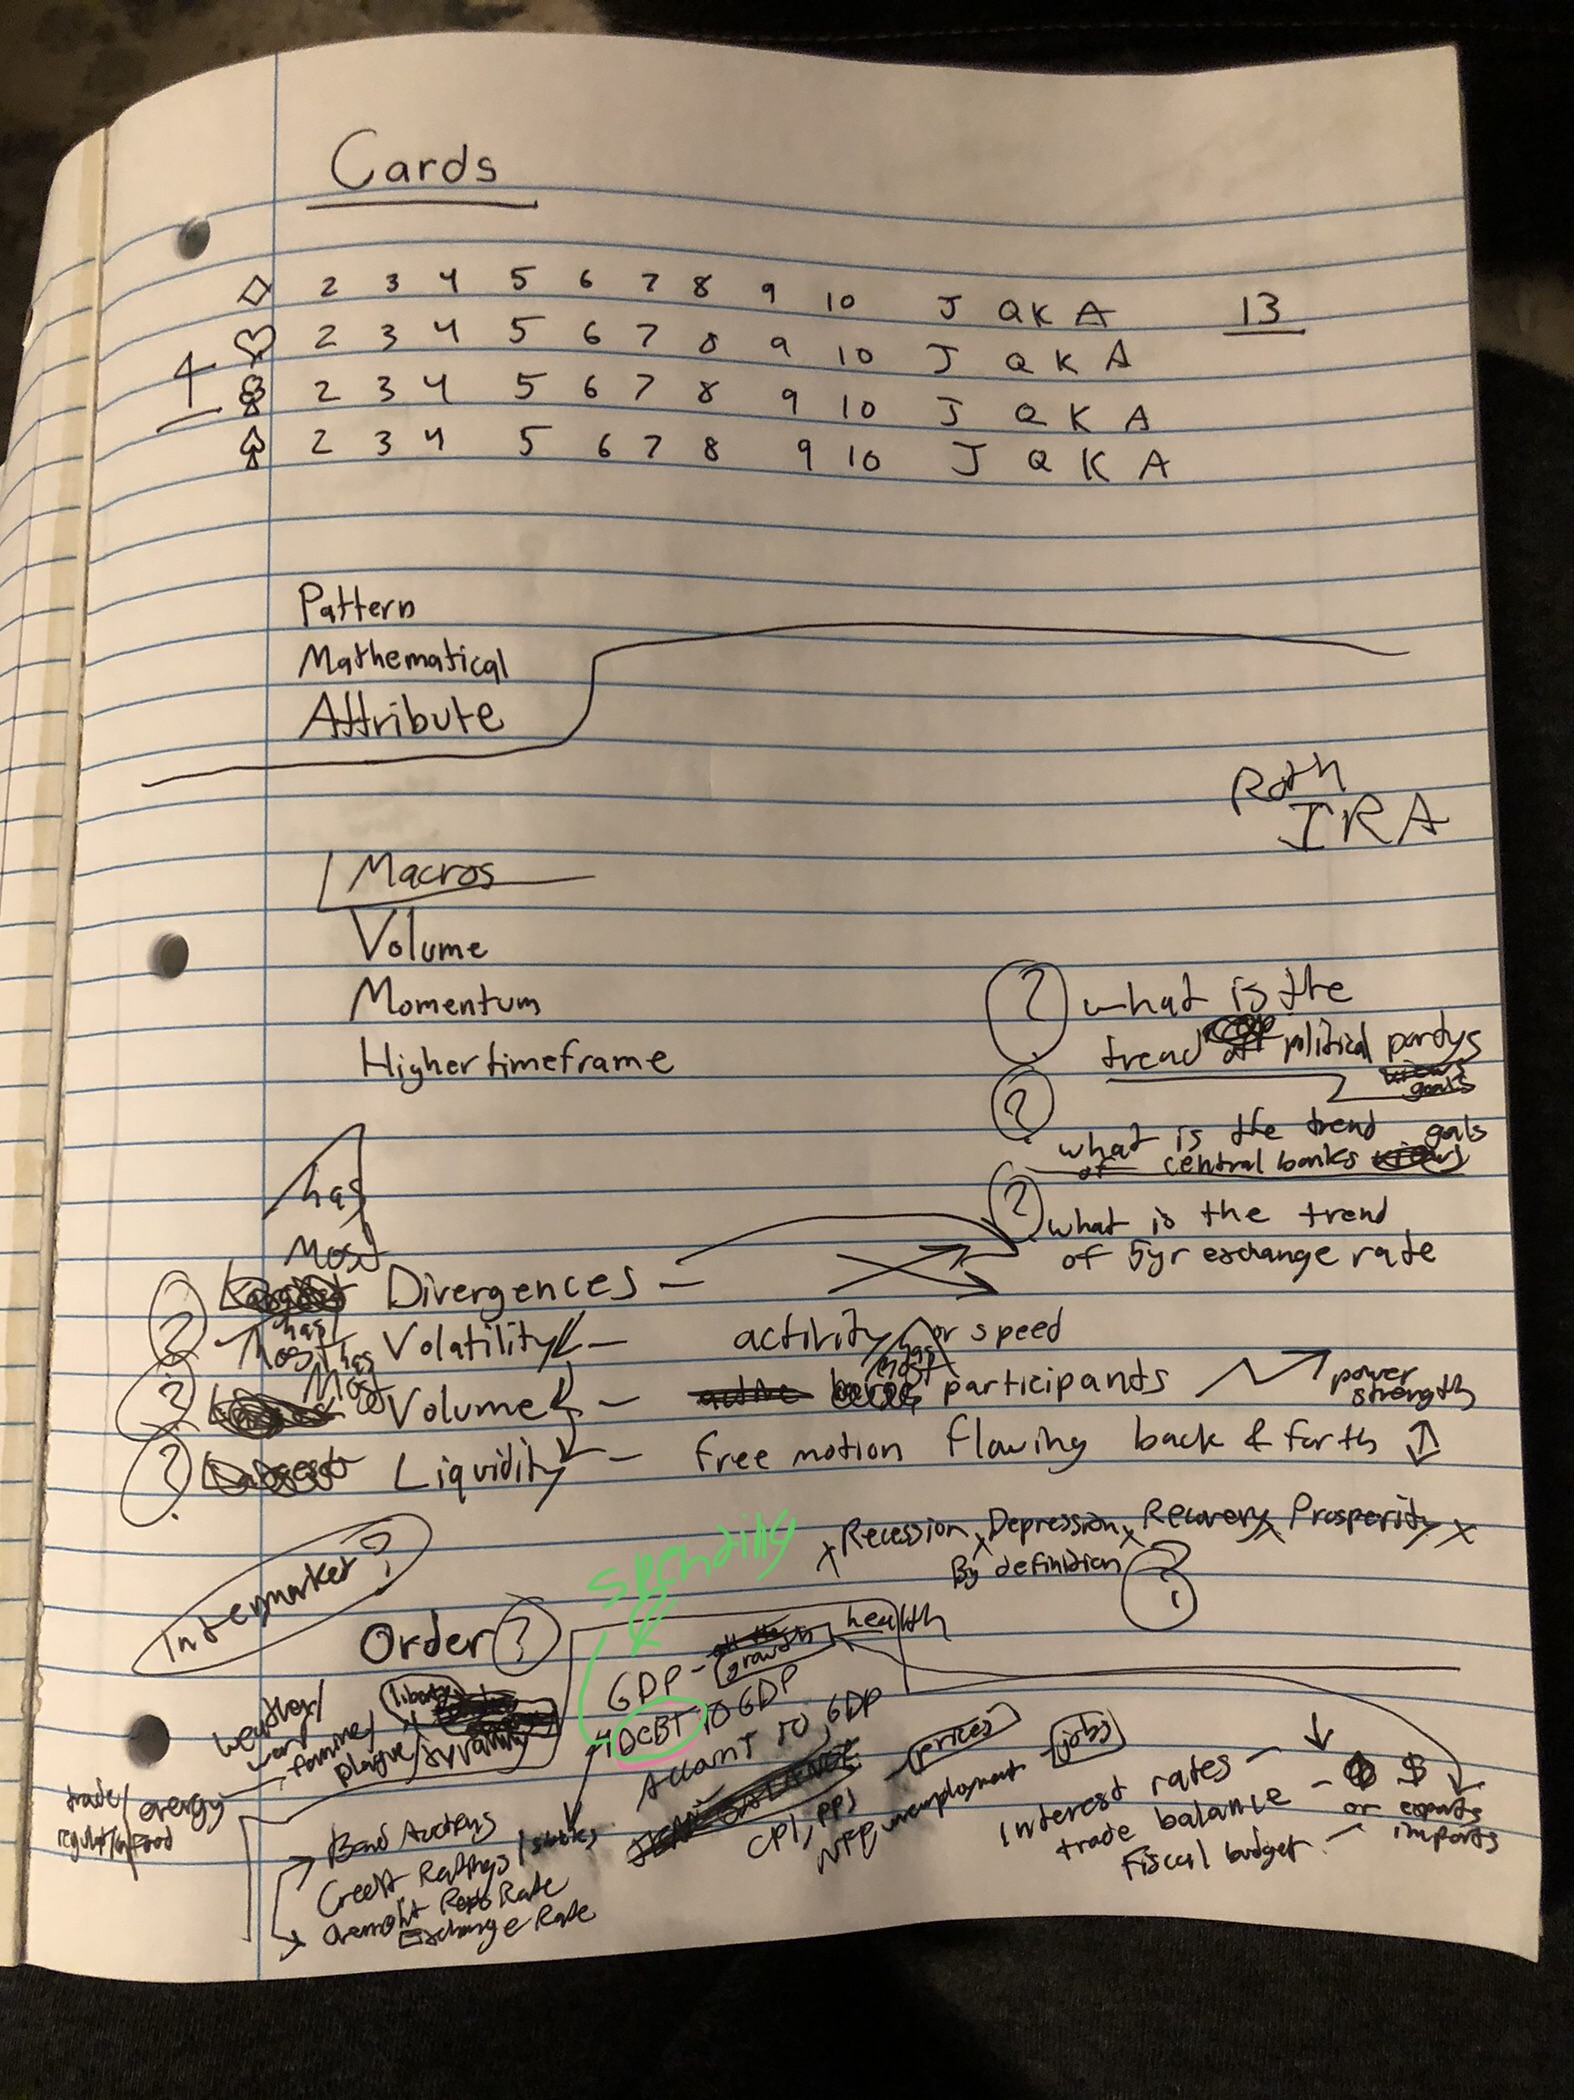 Cards
◇ 2 3 4 5 6 7 8 9 10 J Q K A 13
♡ 2 3 4 5 6 7 8 9 10 J Q K A
4
♧ 2 3 4 5 6 7 8 9 10 J Q K A
♤ 2 3 4 5 6 7 8 9 10 J Q K A
Pattern
Mathematical
Attribute
Roth
IRA
Macros
Volume
Momentum
Higher timeframe
? what is the
trend of political partys
goals
? what is the trend goals
of central banks
? what is the trend
of 5yr exchange rate
has
Most
? Divergences –
? Most has Volatility – activity or speed
? Most has Volume – has most participants power
strength
? Largest Liquidity – free motion flowing back & forth
x Recession x Depression x Recovery x Prosperity x
By definition ?
Intermarket?
spending
Order ?
GDP - growth health
DEBT TO GDP
Account TO GDP
weather/
war/
famine/
plague/
tyranny
trade/
energy
food
CPI, PPI - prices
NFP, unemployment - jobs
Interest rates –
trade balance – $ or exports
imports
Fiscal budget –
Bond Auctions
Credit Ratings
Overnight Repo Rate
Exchange Rate